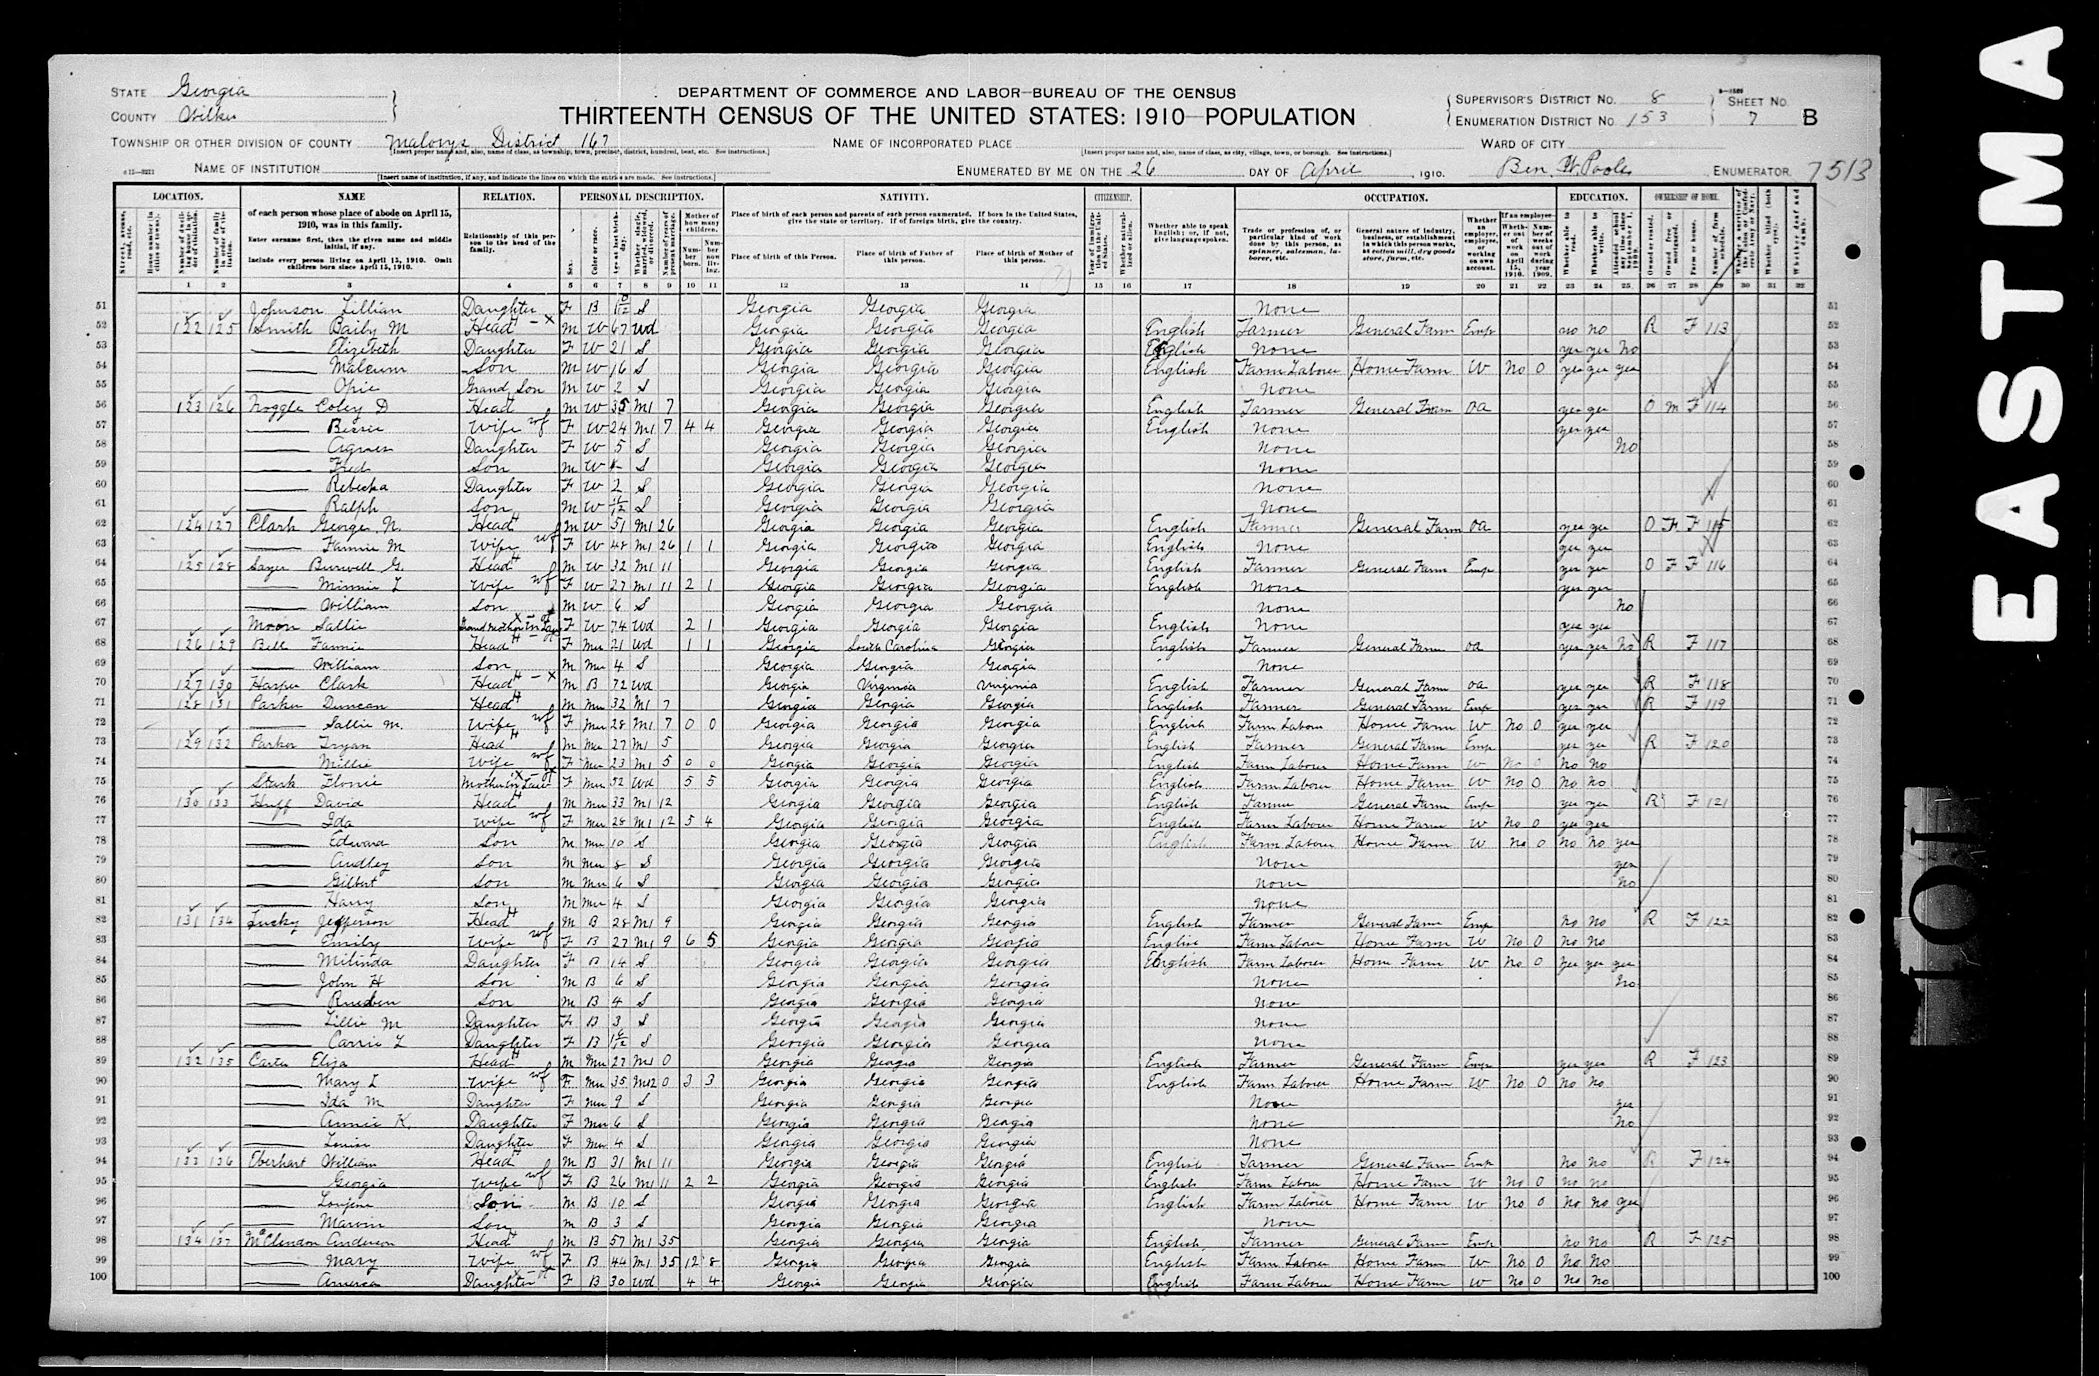 DEPARTMENT OF COMMERCE AND LABOR—BUREAU OF THE CENSUS
THIRTEENTH CENSUS OF THE UNITED STATES: 1910—POPULATION
STATE Georgia
COUNTY Wilkes
TOWNSHIP OR OTHER DIVISION OF COUNTY District 167
NAME OF INCORPORATED PLACE
WARD OF CITY
SUPERVISOR'S DISTRICT NO. 8
ENUMERATION DISTRICT NO. 153
SHEET NO. 7 B
NAME OF INSTITUTION
ENUMERATED BY ME ON THE 26 DAY OF April, 1910.
Ben. W. Poole, ENUMERATOR
7513
LOCATION. NAME RELATION. PERSONAL DESCRIPTION. NATIVITY. CITIZENSHIP. OCCUPATION. EDUCATION. OWNERSHIP OF HOME.
of each person whose place of abode on April 15, 1910, was in this family.
Enter surname first, then the given name and middle initial, if any.
Include every person living on April 15, 1910. Omit children born since April 15, 1910.
Relationship of this person to the head of the family.
Place of birth of each person and parents of each person enumerated. If born in the United States, give the state or territory. If of foreign birth, give the country.
Place of birth of this Person. Place of birth of Father of this person. Place of birth of Mother of this person.
Whether able to speak English; or, if not, give language spoken.
1 2 3 4 5 6 7 8 9 10 11 12 13 14 15 16 17 18 19 20 21 22 23 24 25 26 27 28 29 30 31 32
51 Johnson Lillian Daughter F B S Georgia Georgia Georgia None
52 122 125 Smith Baily M Head M W 67 Wd Georgia Georgia Georgia English Farmer General Farm Emp no no R F 113
53 Elizebeth Daughter F W 21 S Georgia Georgia Georgia English None yes yes No
54 Son M W 16 S Georgia Georgia Georgia English Farm Laborer Home Farm W No 0 yes yes yes
55 Opie Grand Son M W 2 S Georgia Georgia Georgia None
56 123 126 Coley D Head M W 35 M1 7 Georgia Georgia Georgia English Farmer General Farm OA yes yes O M F 114
57 Wife F W 24 M1 7 4 4 Georgia Georgia Georgia English None yes yes
58 Agnes Daughter F W 5 S Georgia Georgia Georgia None No
59 Fred Son M W 4 S Georgia Georgia Georgia None
60 Rebecka Daughter F W 2 S Georgia Georgia Georgia None
61 Ralph Son M W S Georgia Georgia Georgia None
62 124 127 Clark George N. Head M W 51 M1 26 Georgia Georgia Georgia English Farmer General Farm OA yes yes O F F 115
63 Fannie M Wife F W 48 M1 26 1 1 Georgia Georgia Georgia English None yes yes
64 125 128 Burwell G. Head M W 32 M1 11 Georgia Georgia Georgia English Farmer General Farm Emp yes yes O F F 116
65 Minnie L Wife F W 27 M1 11 2 1 Georgia Georgia Georgia English None yes yes
66 William Son M W 6 S Georgia Georgia Georgia None No
67 Moon Sallie Grandmother in Law F W 74 Wd 2 1 Georgia Georgia Georgia English None yes yes
68 126 129 Bell Fannie Head F Mu 21 Wd 1 1 Georgia South Carolina Georgia English Farmer General Farm OA yes yes No R F 117
69 William Son M Mu 4 S Georgia Georgia Georgia None
70 127 130 Harper Clark Head M B 72 Wd Georgia Virginia Virginia English Farmer General Farm OA yes yes R F 118
71 128 131 Parker Duncan Head M Mu 32 M1 7 Georgia Georgia Georgia English Farmer General Farm Emp yes yes R F 119
72 Sallie M. Wife F Mu 28 M1 7 0 0 Georgia Georgia Georgia English Farm Laborer Home Farm W No 0 yes yes
73 129 132 Parker Head M Mu 27 M1 5 Georgia Georgia Georgia English Farmer General Farm Emp yes yes R F 120
74 Millie Wife F Mu 23 M1 5 0 0 Georgia Georgia Georgia English Farm Laborer Home Farm W No 0 No No
75 Stark Mother in Law F Mu 52 Wd 5 5 Georgia Georgia Georgia English Farm Laborer Home Farm W No 0 No No
76 130 133 Huff David Head M Mu 33 M1 12 Georgia Georgia Georgia English Farmer General Farm Emp yes yes R F 121
77 Ida Wife F Mu 28 M1 12 5 4 Georgia Georgia Georgia English Farm Laborer Home Farm W No 0 yes yes
78 Edward Son M Mu 10 S Georgia Georgia Georgia English Farm Laborer Home Farm W No 0 No No yes
79 Audley Son M Mu 8 S Georgia Georgia Georgia None yes
80 Gilbert Son M Mu 6 S Georgia Georgia Georgia None No
81 Harry Son M Mu 4 S Georgia Georgia Georgia None
82 131 134 Lucky Jefferson Head M B 28 M1 9 Georgia Georgia Georgia English Farmer General Farm Emp No No R F 122
83 Emily Wife F B 27 M1 9 6 5 Georgia Georgia Georgia English Farm Laborer Home Farm W No 0 No No
84 Milinda Daughter F B 14 S Georgia Georgia Georgia English Farm Laborer Home Farm W No 0 yes yes yes
85 John H Son M B 6 S Georgia Georgia Georgia None No
86 Son M B 4 S Georgia Georgia Georgia None
87 Lillie M Daughter F B 3 S Georgia Georgia Georgia None
88 Carrie L Daughter F B S Georgia Georgia Georgia None
89 132 135 Carter Eliza Head M Mu 27 M1 0 Georgia Georgia Georgia English Farmer General Farm Emp yes yes R F 123
90 Mary L Wife F Mu 35 M2 0 3 3 Georgia Georgia Georgia English Farm Laborer Home Farm W No 0 No No
91 Ida M Daughter F Mu 9 S Georgia Georgia Georgia None yes
92 Annie K. Daughter F Mu 6 S Georgia Georgia Georgia None No
93 Louise Daughter F Mu 4 S Georgia Georgia Georgia None
94 133 136 Eberhart William Head M B 31 M1 11 Georgia Georgia Georgia English Farmer General Farm Emp No No R F 124
95 Georgia Wife F B 26 M1 11 2 2 Georgia Georgia Georgia English Farm Laborer Home Farm W No 0 No No
96 Son M B 10 S Georgia Georgia Georgia English Farm Laborer Home Farm W No 0 No No yes
97 Marvin Son M B 3 S Georgia Georgia Georgia None
98 134 137 McClendon Anderson Head M B 57 M1 35 Georgia Georgia Georgia English Farmer General Farm Emp No No R F 125
99 Mary Wife F B 44 M1 35 12 8 Georgia Georgia Georgia English Farm Laborer Home Farm W No 0 No No
100 America Daughter F B 30 Wd 4 4 Georgia Georgia Georgia English Farm Laborer Home Farm W No 0 No No
EASTMA